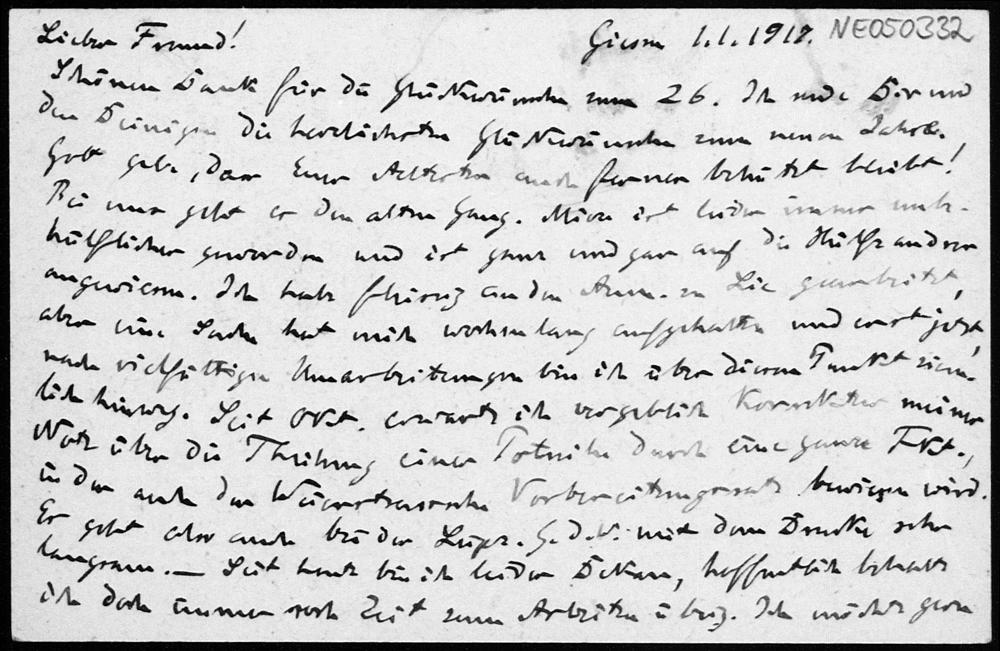 Lieber Freund! Giessen 1.1.1917. NE050332
Schönen Dank für die Glückwünsche zum 26. Ich sende Dir und
den Deinigen die herzlichsten Glückwünsche zum neuen Jahre.
Gott gebe, dass Euer Aeltester auch ferner behütet bleibt!
Bei uns geht es den alten Gang. Mira ist leider immer unbe-
hülflicher geworden und ist ganz und gar auf die Hülfe anderer
angewiesen. Ich habe fleissig an den Anm. zu Lie gearbeitet,
aber eine Sache hat mich wochenlang aufgehalten und erst jetzt,
nach vielfältigen Umarbeitungen bin ich über diesen Punkt ziem-
lich hinweg. Seit Okt. erwarte ich vergeblich Korrektur meiner
Note über die Theilung einer Potreihe durch eine ganze Fkt.,
in der auch der Weierstrasssche Vorbereitungssatz bewiesen wird.
Es geht also auch bei der Leipz. G.d.W. mit dem Drucke sehr
langsam. — Seit heute bin ich leider Dekan, hoffentlich behalte
ich doch immer noch Zeit zum Arbeiten übrig. Ich möchte gern